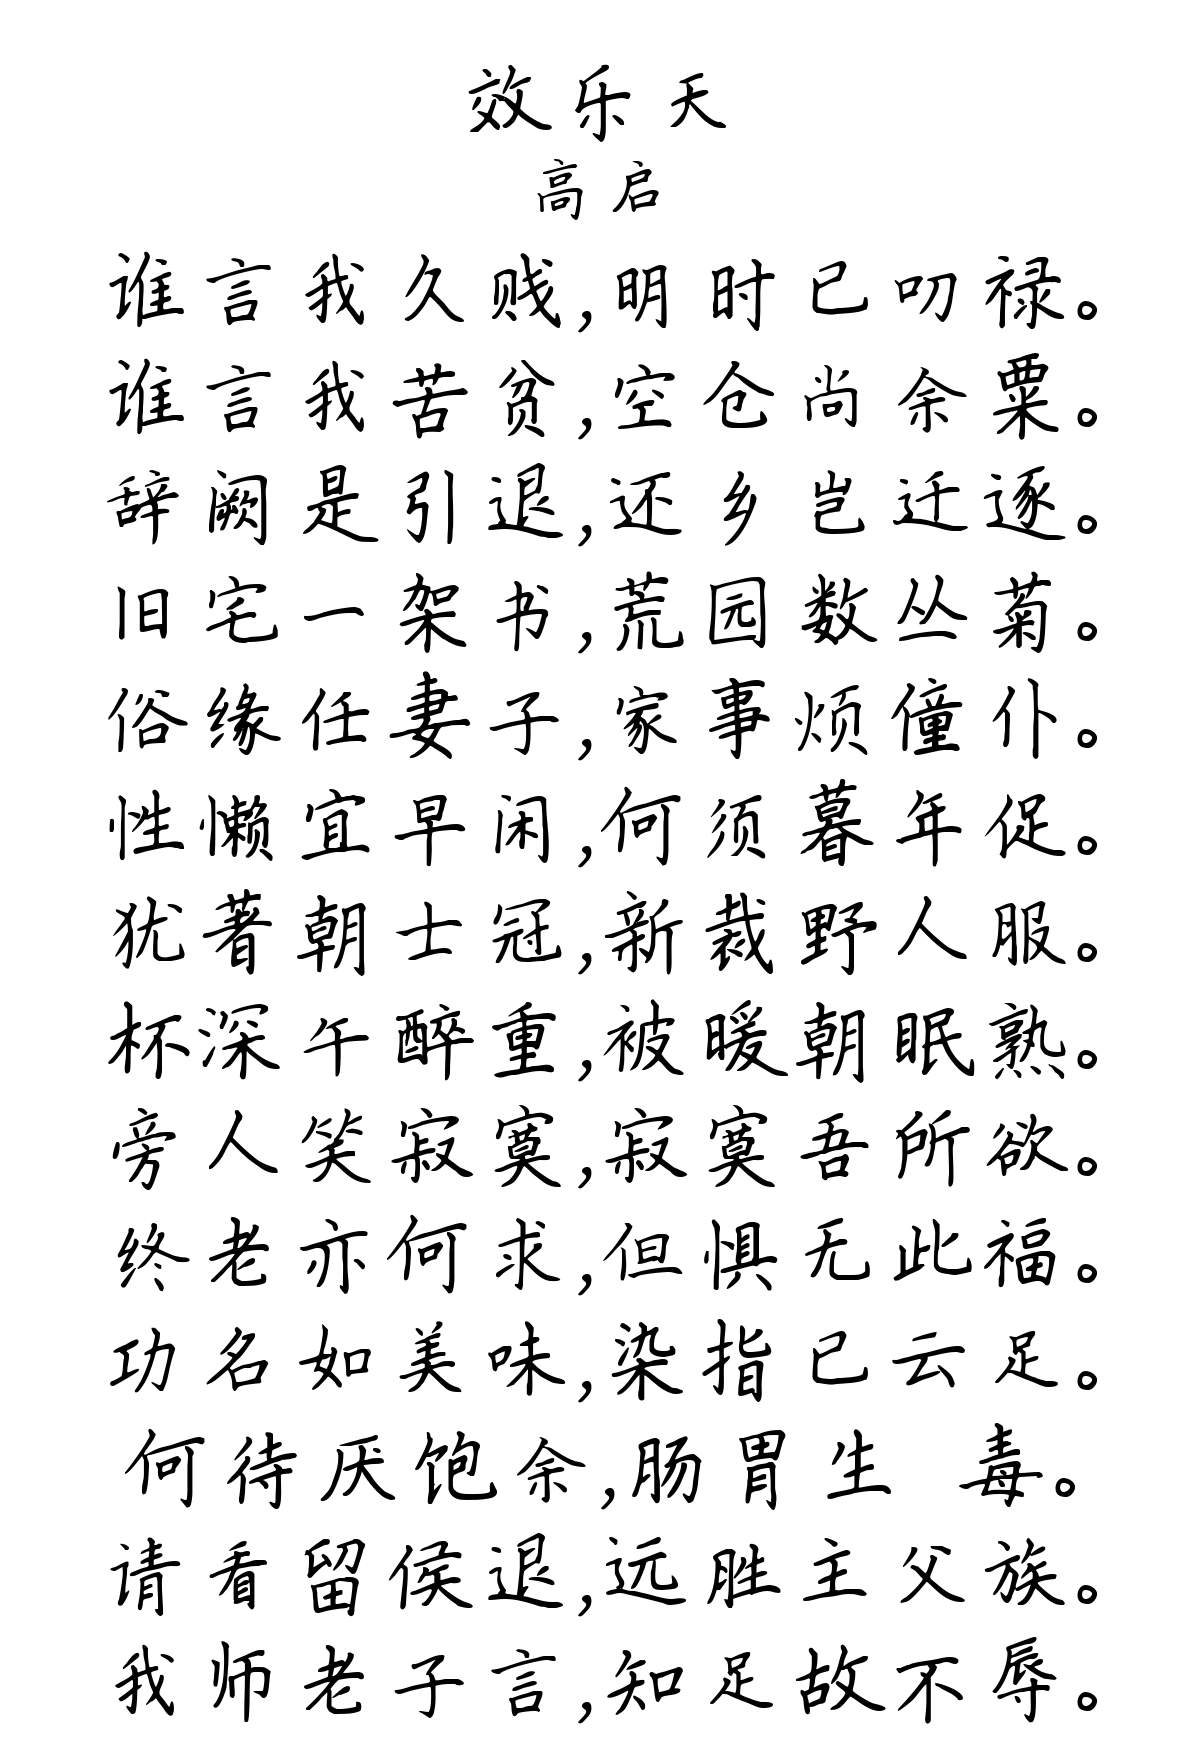 效乐天
高启
谁言我久贱,明时已叨禄。
谁言我苦贫,空仓尚余粟。
辞阙是引退,还乡岂迁逐。
旧宅一架书,荒园数丛菊。
俗缘任妻子,家事烦僮仆。
性懒宜早闲,何须暮年促。
犹著朝士冠,新裁野人服。
杯深午醉重,被暖朝眠熟。
旁人笑寂寞,寂寞吾所欲。
终老亦何求,但惧无此福。
功名如美味,染指已云足。
何待厌饱余,肠胃生 毒。
请看留侯退,远胜主父族。
我师老子言,知足故不辱。